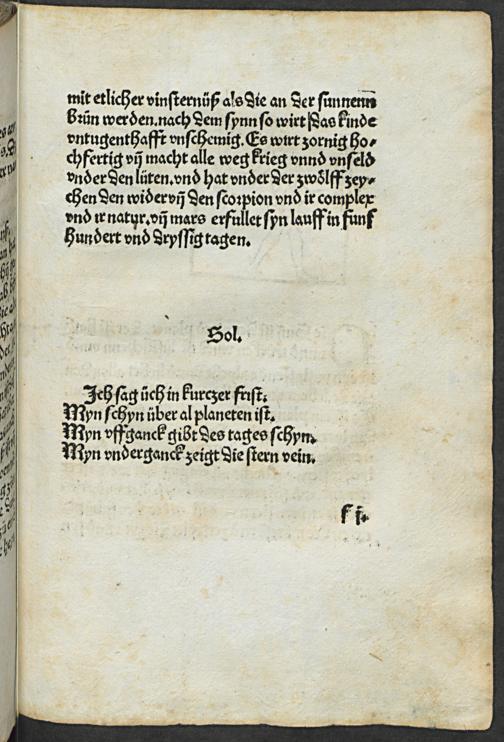 mit etlicher vinsternüß als die an der sunnenn
brün werden. nach dem synn so wirt das kinde
vntugenthafft vnscheinig. Es wirt zornig ho⸗
chfertig vñ macht alle weg krieg vnnd vnseld
vnder den lüten. vnd hat vnder der zwölff zey⸗
chen den wider vñ den scorpion vnd ir complex
vnd ir natur. vñ mars erfüllet syn lauff in funf
hundert vnd dryssig tagen.
Sol.
Ich sag üch in kurczer frist.
Myn schyn über al planeten ist.
Myn vffganck gibt des tages schyn.
Myn vnderganck zeigt die stern vein.
f j.